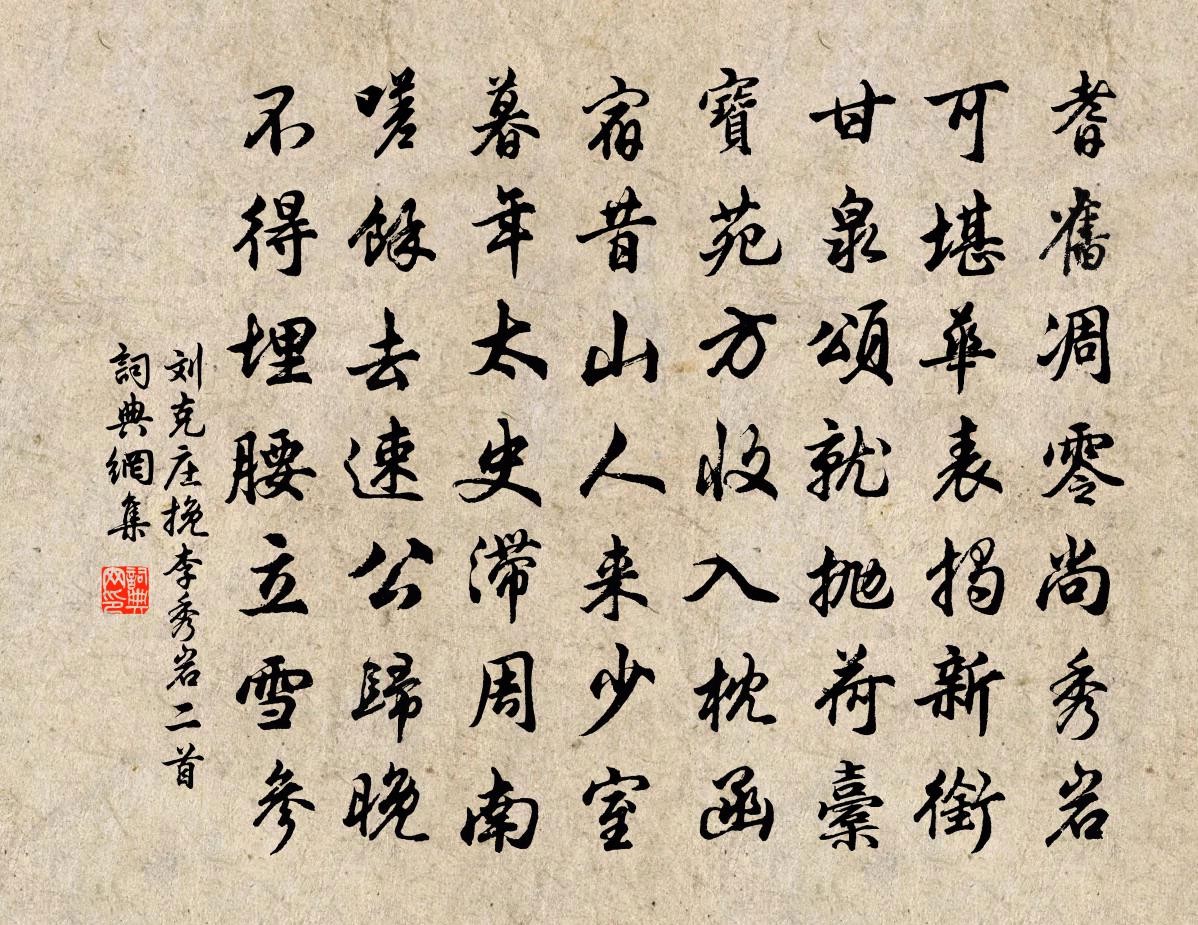 耆舊凋零尚秀岩
可堪華表揭新銜
甘泉頌就拋荷橐
寶苑方收入枕函
宿昔山人来少室
暮年太史滯周南
嗟餘去速公歸晚
不得埋腰立雪參
刘克庄挽李秀岩二首
詞典網集
詞典
网印